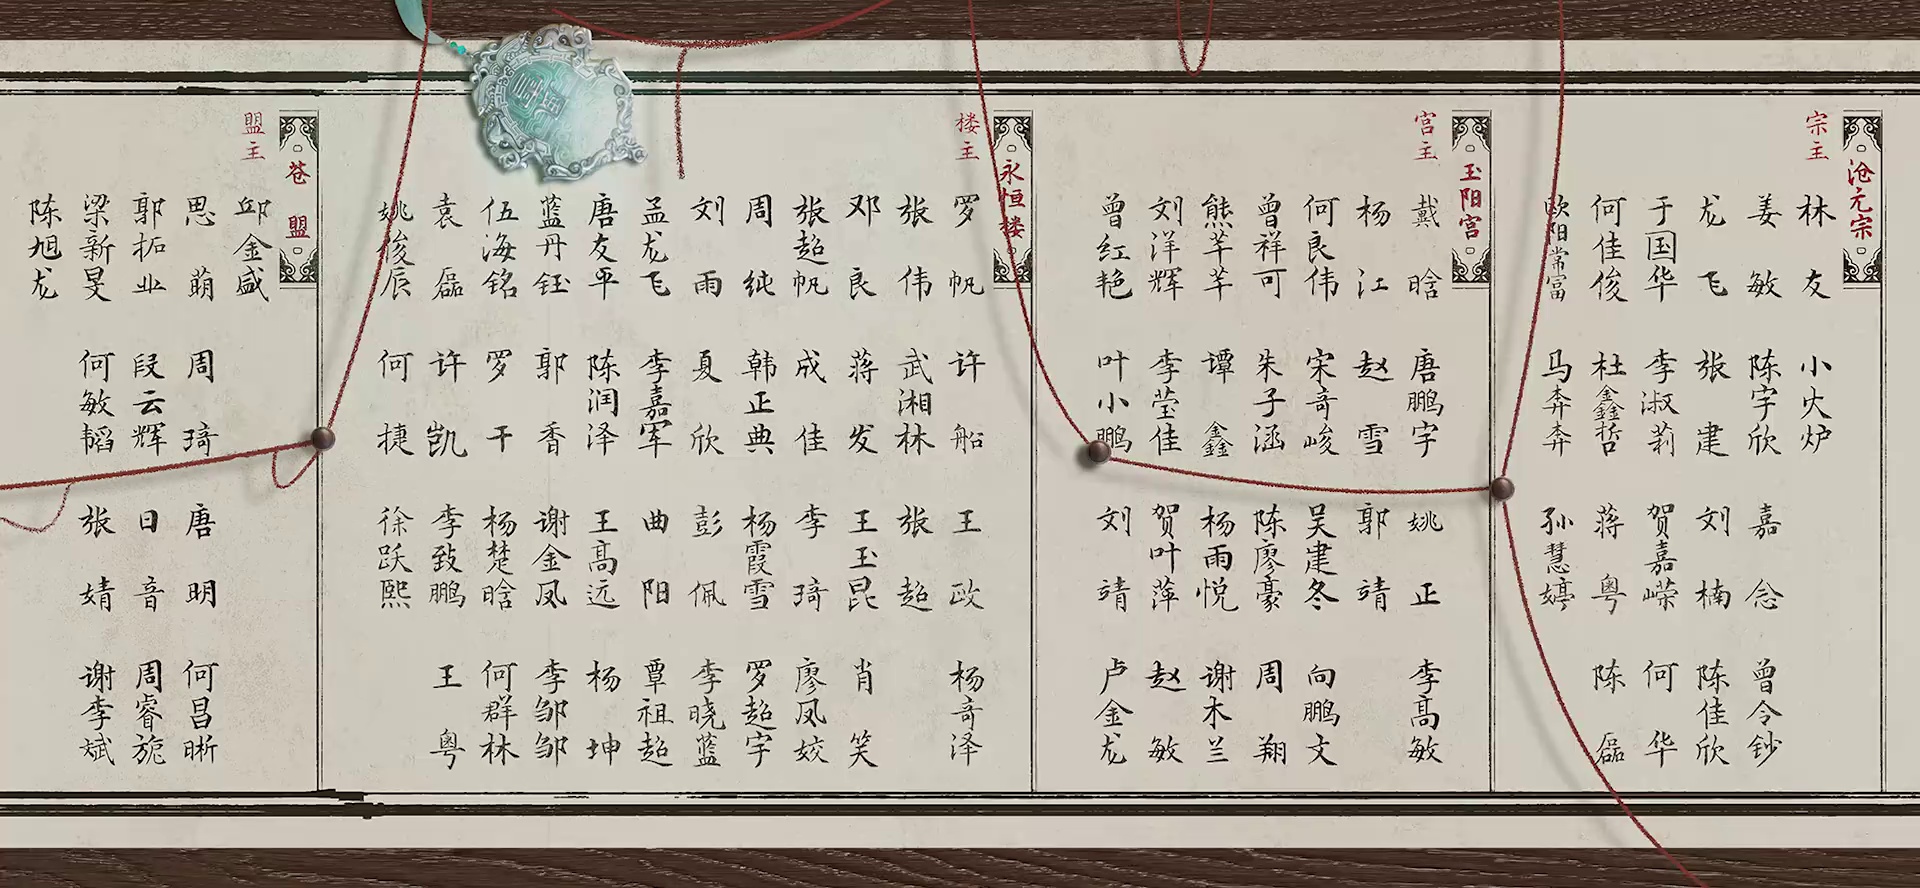 沧元宗
宗主
林友
小火炉
姜敏
陈宇欣
嘉念
曾令钞
龙飞
张建
刘楠
陈佳欣
于国华
李淑莉
贺嘉嵘
何华
何佳俊
杜鑫哲
蒋粤
陈磊
欧阳常富
马奔奔
孙慧婷
玉阳宫
宫主
戴晗
唐鹏宇
姚正
李高敏
杨江
赵雪
郭靖
何良伟
宋奇峻
吴建冬
向鹏文
曾祥可
朱子涵
陈廖豪
周翔
熊芊芊
谭鑫
杨雨悦
谢木兰
刘洋辉
李莹佳
贺叶萍
赵敏
曾红艳
叶小鹏
刘靖
卢金龙
永恒楼
楼主
罗帆
许船
王政
杨奇泽
张伟
武湘林
张超
邓良
蒋发
王玉昆
肖笑
张超帆
成佳
李琦
廖凤姣
周纯
韩正典
杨霞雪
罗超宇
刘雨
夏欣
彭佩
李晓蓝
孟龙飞
李嘉军
曲阳
覃祖超
唐友平
陈润泽
王高远
杨坤
蓝丹钰
郭香
谢金凤
李邹邹
伍海铭
罗干
杨楚晗
何群林
袁磊
许凯
李致鹏
王粤
姚俊辰
何捷
徐跃熙
苍盟
盟主
邱金盛
思萌
周琦
唐明
何昌晰
郭拓业
段云辉
日音
周睿旎
梁新旻
何敏韬
张婧
谢李斌
陈旭龙